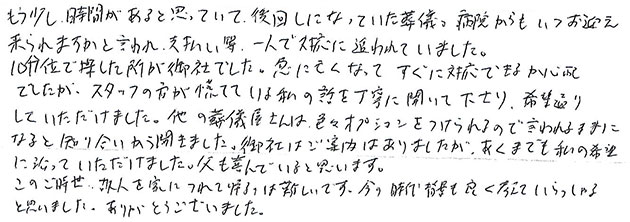 もう少し、時間があると思っていて、後回しになっていた葬儀。病院からも いつお迎え
来られますかと言われ、支払い等、一人で対応に追われていました。
10分位で探した所が御社でした。急に亡くなって すぐに対応できるか心配
でしたが、スタッフの方が慌てている私の話を丁寧に聞いて下さり、希望通り
していただけました。他の葬儀屋さんは、色々オプションをつけられるので言われるままに
なると知り合いから聞きました。御社はご案内はありましたが、あくまでも私の希望
に沿っていただけました。父も喜んでいると思います。
このご時世、故人を家につれて帰るのは難しいです。今の時代 を良く考えていらっしゃる
と思いました。ありがとうございました。